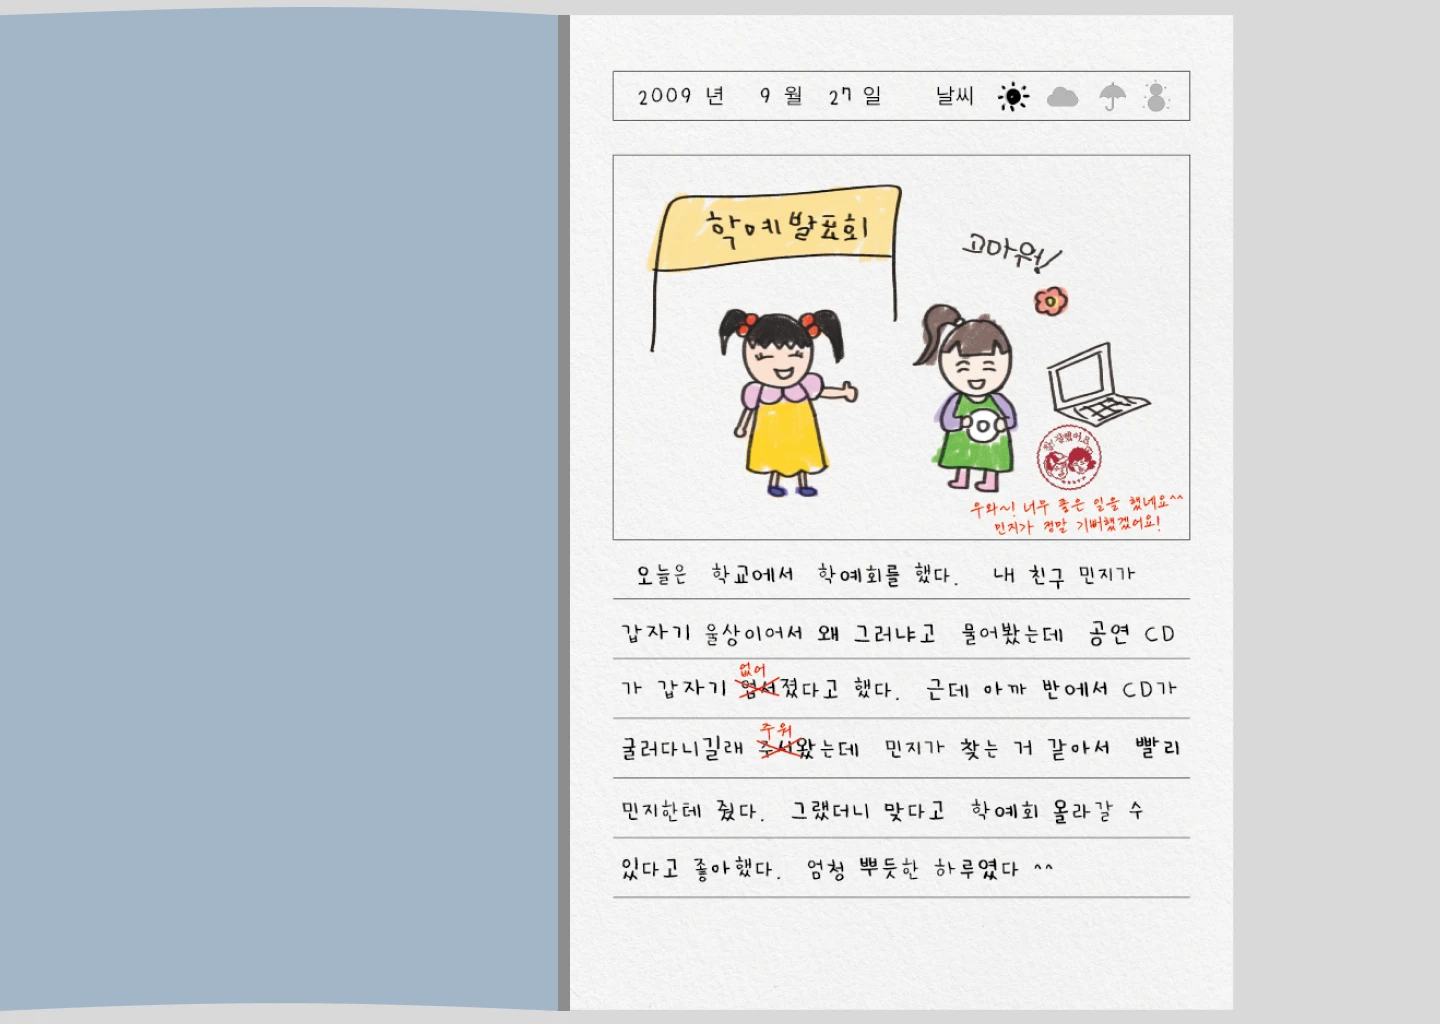 2009 년 9 월 27 일 날씨
학예발표회
고마워!
참! 잘했어요
우와~! 너무 좋은 일을 했네요^^
민지가 정말 기뻐했겠어요!
오늘은 학교에서 학예회를 했다. 내 친구 민지가
갑자기 울상이어서 왜 그러냐고 물어봤는데 공연 CD
없어
가 갑자기 업서졌다고 했다. 근데 아까 반에서 CD가
주워
굴러다니길래 주서왔는데 민지가 찾는 거 같아서 빨리
민지한테 줬다. 그랬더니 맞다고 학예회 올라갈 수
있다고 좋아했다. 엄청 뿌듯한 하루였다 ^^